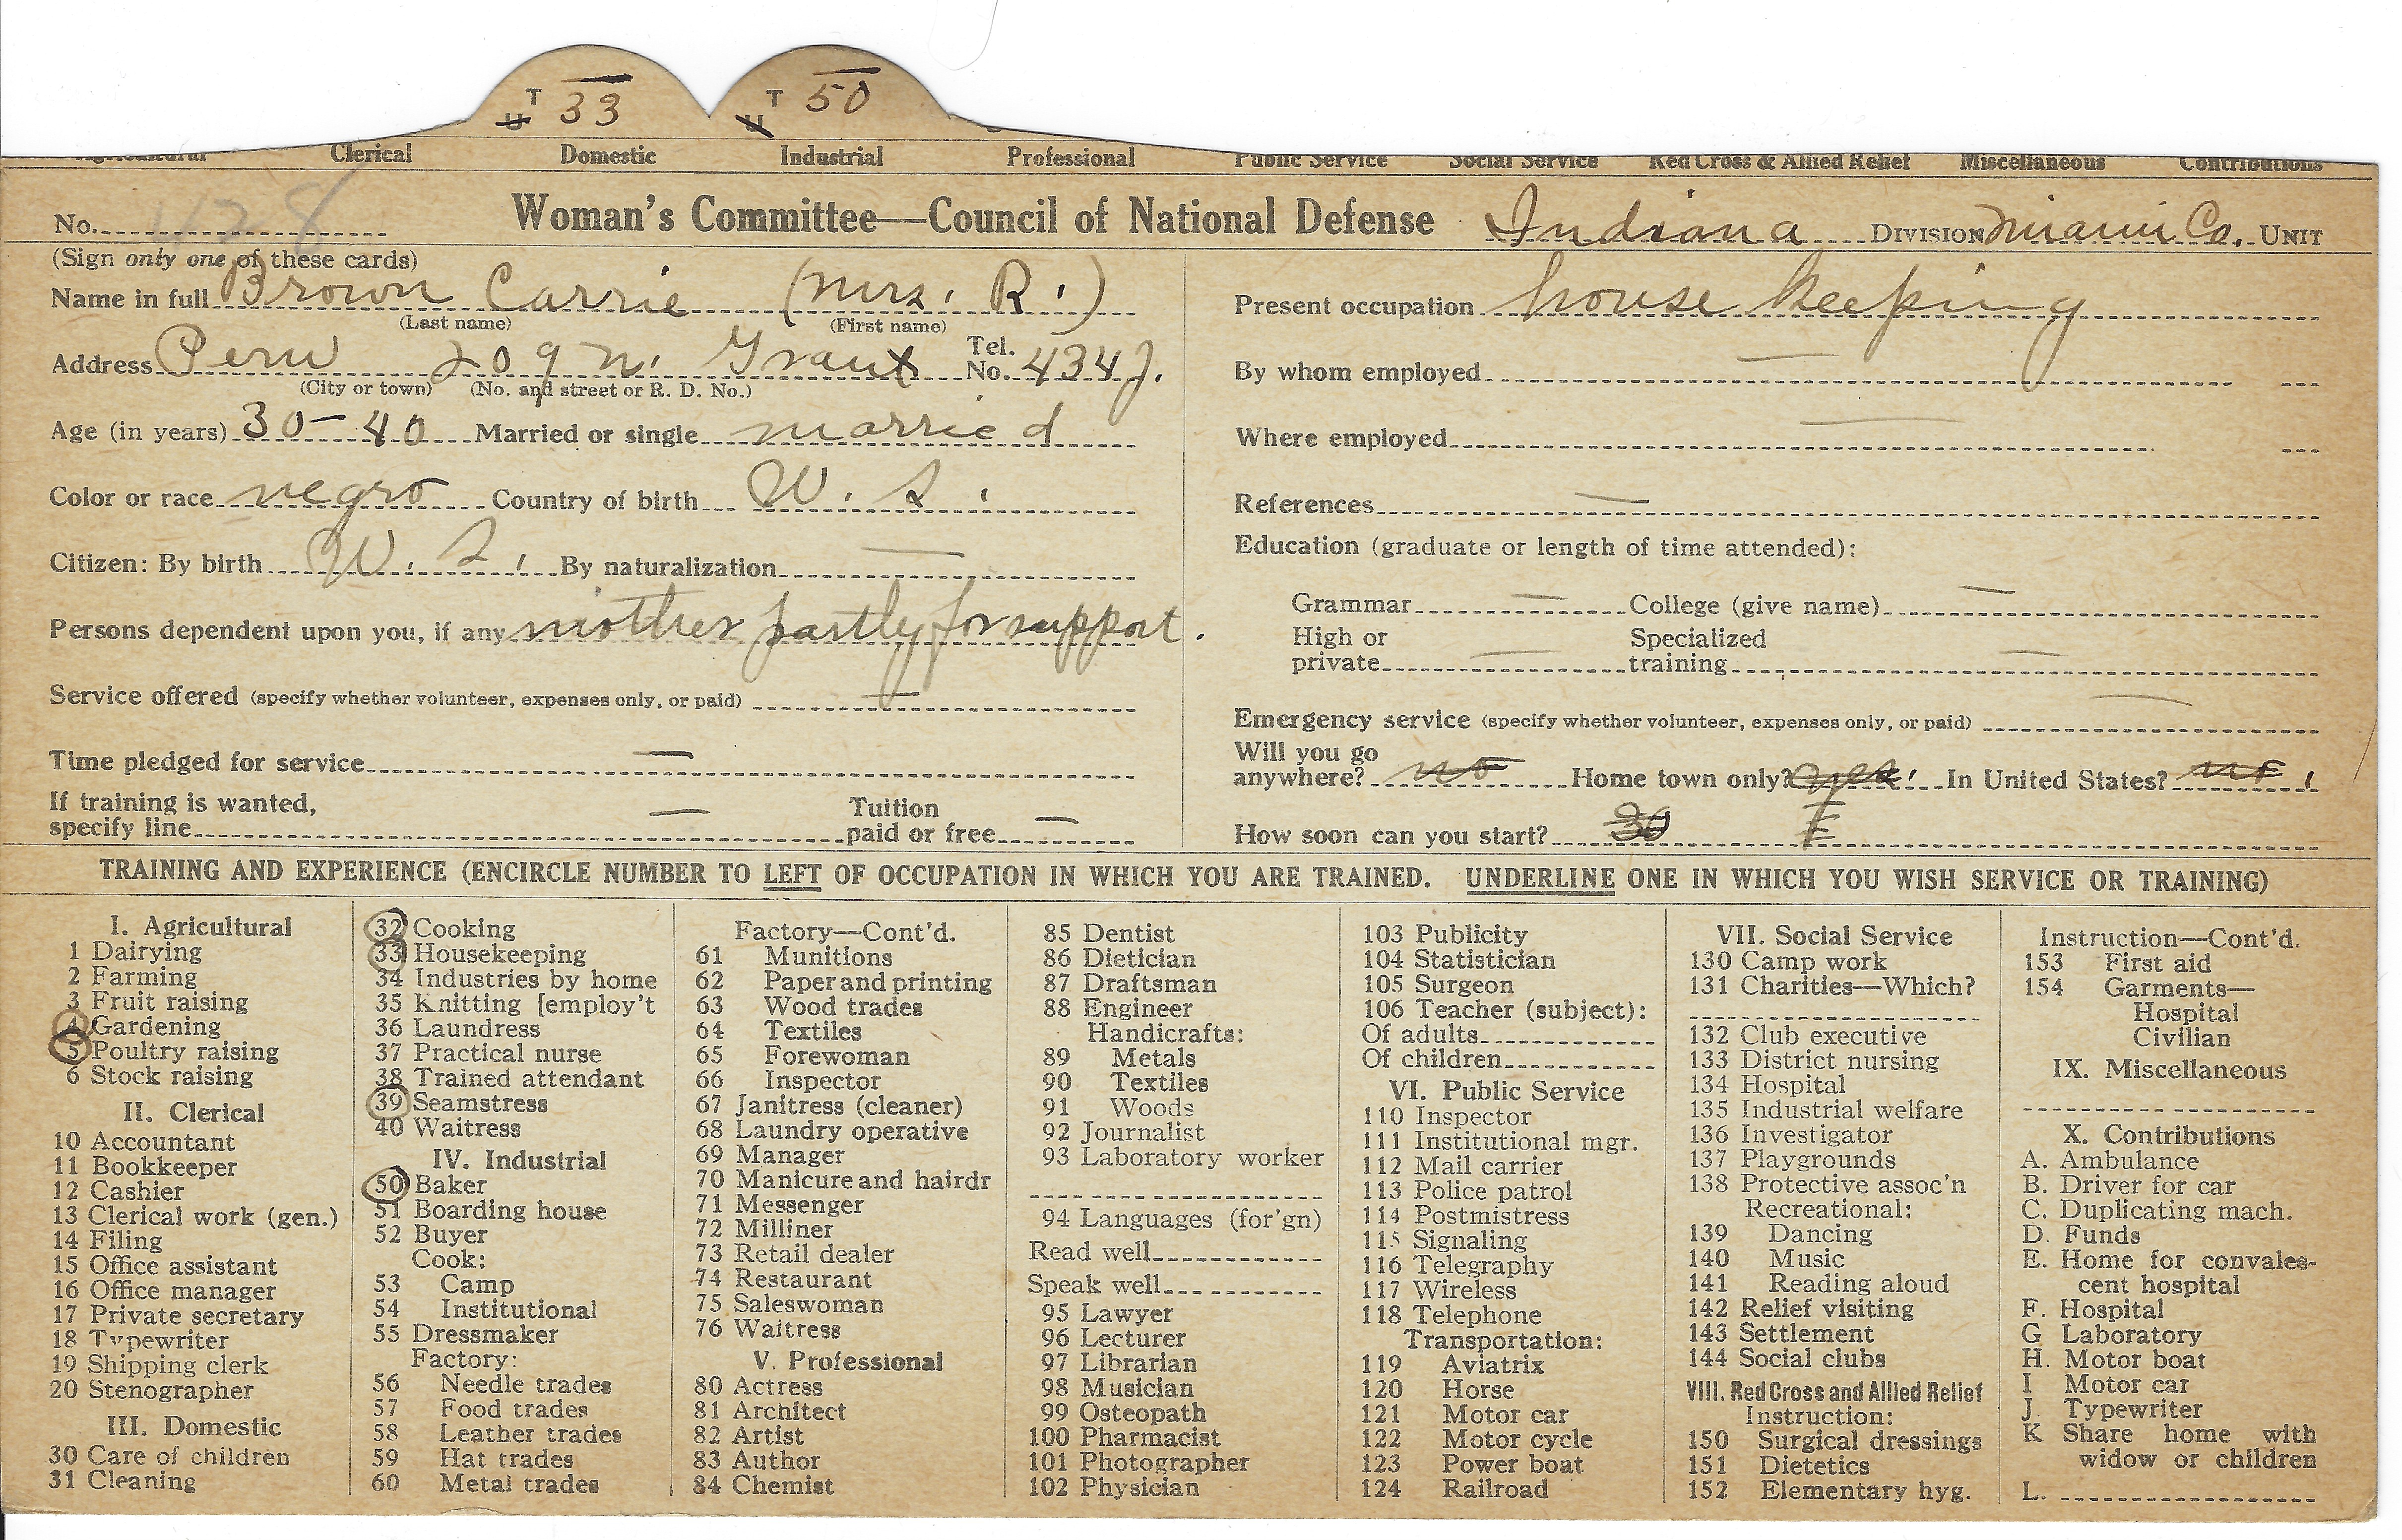 T 33 T 50
U U
Clerical Domestic Industrial Professional Public Service Social Service Red Cross & Allied Relief Miscellaneous Contributions
No. 428 Woman's Committee—Council of National Defense Indiana DIVISION Miami Co. UNIT
(Sign only one of these cards)
Name in full Brown Carrie (Mrs. R.)
(Last name) (First name)
Address Peru 209 N. Grant Tel. No. 434J.
(City or town) (No. and street or R. D. No.)
Age (in years) 30-40 Married or single married
Color or race negro Country of birth W. S.
Citizen: By birth W. S. By naturalization —
Persons dependent upon you, if any mother partly for support.
Service offered (specify whether volunteer, expenses only, or paid) —
Time pledged for service —
If training is wanted,
specify line — Tuition paid or free —
Present occupation house keeping
By whom employed —
Where employed —
References —
Education (graduate or length of time attended):
Grammar — College (give name) —
High or private — Specialized training —
Emergency service (specify whether volunteer, expenses only, or paid) —
Will you go
anywhere? no Home town only? yes. In United States? no.
How soon can you start?
TRAINING AND EXPERIENCE (ENCIRCLE NUMBER TO LEFT OF OCCUPATION IN WHICH YOU ARE TRAINED. UNDERLINE ONE IN WHICH YOU WISH SERVICE OR TRAINING)
I. Agricultural
1 Dairying
2 Farming
3 Fruit raising
4 Gardening
5 Poultry raising
6 Stock raising
II. Clerical
10 Accountant
11 Bookkeeper
12 Cashier
13 Clerical work (gen.)
14 Filing
15 Office assistant
16 Office manager
17 Private secretary
18 Typewriter
19 Shipping clerk
20 Stenographer
III. Domestic
30 Care of children
31 Cleaning
32 Cooking
33 Housekeeping
34 Industries by home
35 Knitting [employ't
36 Laundress
37 Practical nurse
38 Trained attendant
39 Seamstress
40 Waitress
IV. Industrial
50 Baker
51 Boarding house
52 Buyer
Cook:
53 Camp
54 Institutional
55 Dressmaker
Factory:
56 Needle trades
57 Food trades
58 Leather trades
59 Hat trades
60 Metal trades
Factory—Cont'd.
61 Munitions
62 Paper and printing
63 Wood trades
64 Textiles
65 Forewoman
66 Inspector
67 Janitress (cleaner)
68 Laundry operative
69 Manager
70 Manicure and hairdr
71 Messenger
72 Milliner
73 Retail dealer
74 Restaurant
75 Saleswoman
76 Waitress
V. Professional
80 Actress
81 Architect
82 Artist
83 Author
84 Chemist
85 Dentist
86 Dietician
87 Draftsman
88 Engineer
Handicrafts:
89 Metals
90 Textiles
91 Woods
92 Journalist
93 Laboratory worker
94 Languages (for'gn)
Read well
Speak well
95 Lawyer
96 Lecturer
97 Librarian
98 Musician
99 Osteopath
100 Pharmacist
101 Photographer
102 Physician
103 Publicity
104 Statistician
105 Surgeon
106 Teacher (subject):
Of adults
Of children
VI. Public Service
110 Inspector
111 Institutional mgr.
112 Mail carrier
113 Police patrol
114 Postmistress
115 Signaling
116 Telegraphy
117 Wireless
118 Telephone
Transportation:
119 Aviatrix
120 Horse
121 Motor car
122 Motor cycle
123 Power boat
124 Railroad
VII. Social Service
130 Camp work
131 Charities—Which?
132 Club executive
133 District nursing
134 Hospital
135 Industrial welfare
136 Investigator
137 Playgrounds
138 Protective assoc'n
Recreational:
139 Dancing
140 Music
141 Reading aloud
142 Relief visiting
143 Settlement
144 Social clubs
VIII. Red Cross and Allied Relief
Instruction:
150 Surgical dressings
151 Dietetics
152 Elementary hyg.
Instruction—Cont'd.
153 First aid
154 Garments—
Hospital
Civilian
IX. Miscellaneous
X. Contributions
A. Ambulance
B. Driver for car
C. Duplicating mach.
D. Funds
E. Home for convales-
cent hospital
F. Hospital
G Laboratory
H. Motor boat
I Motor car
J. Typewriter
K Share home with
widow or children
L.